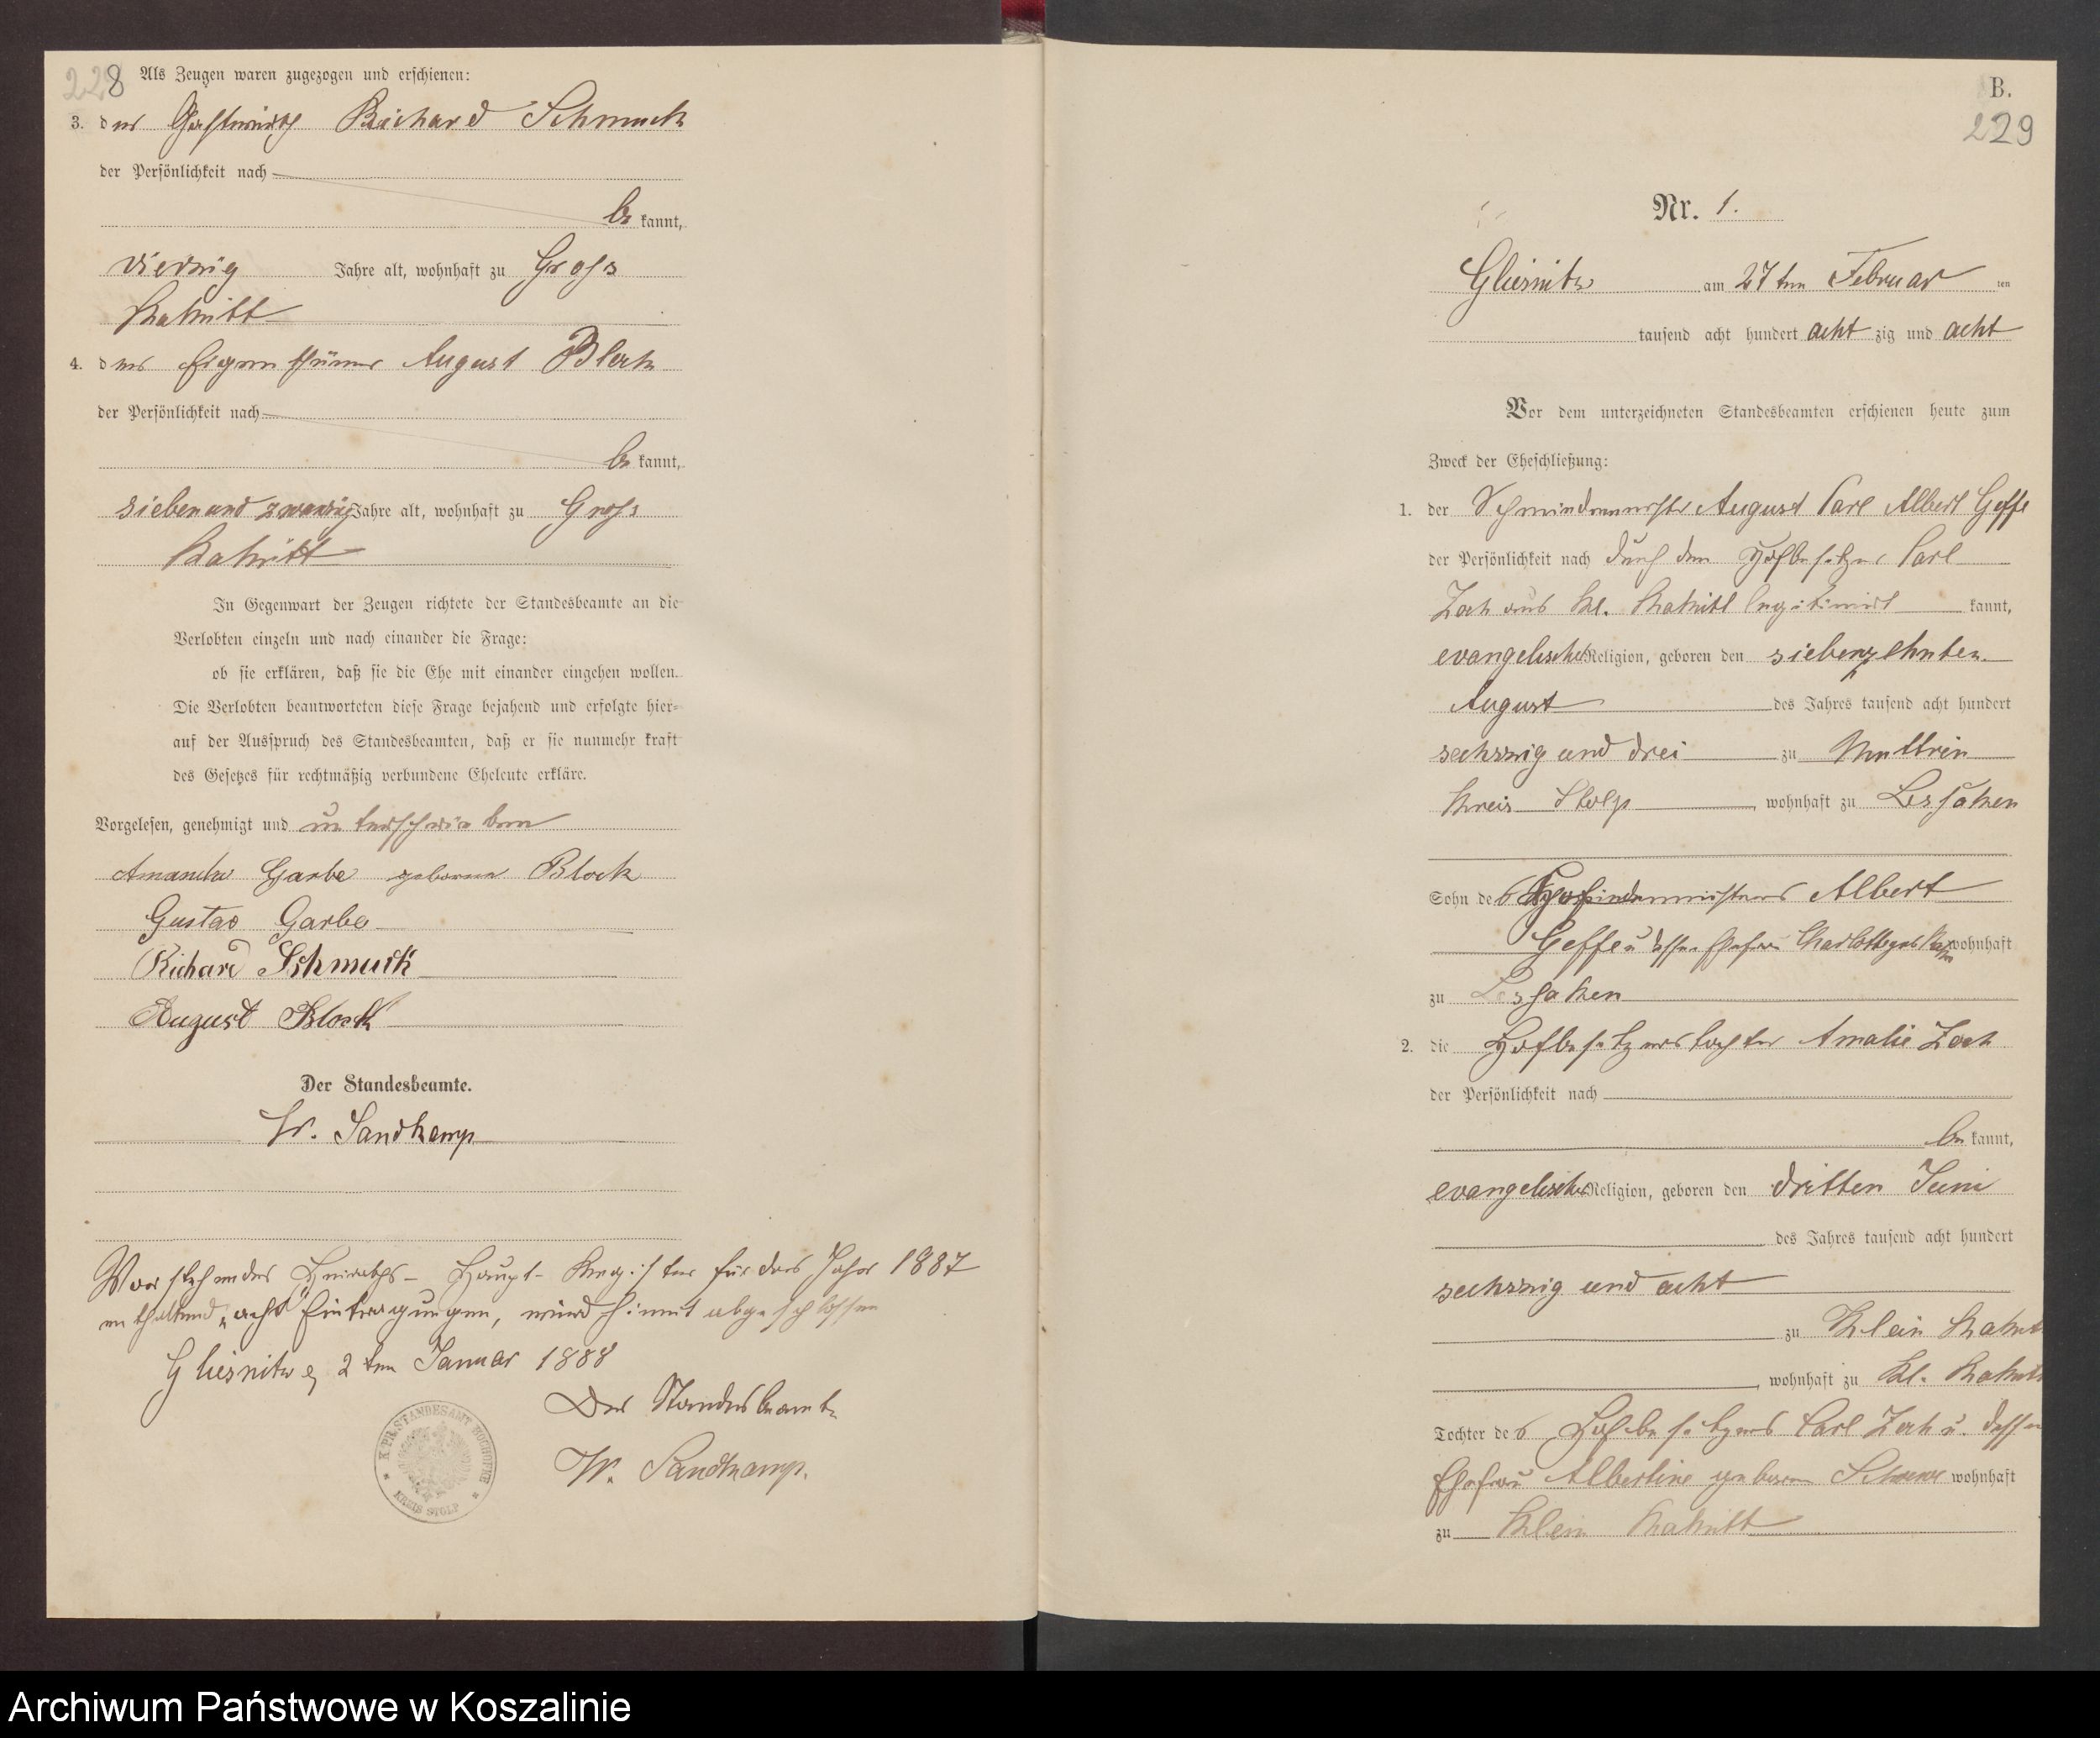 228
Als Zeugen waren zugezogen und erschienen:
3. der Gastwirth Richard Schmuck
der Persönlichkeit nach
be kannt,
vierzig Jahre alt, wohnhaft zu Gross
Rakitt
4. der Eigenthümer August Block
der Persönlichkeit nach
be kannt,
siebenundzwanzig Jahre alt, wohnhaft zu Gross
Rakitt
In Gegenwart der Zeugen richtete der Standesbeamte an die
Verlobten einzeln und nach einander die Frage:
ob sie erklären, daß sie die Ehe mit einander eingehen wollen.
Die Verlobten beantworteten diese Frage bejahend und erfolgte hier-
auf der Ausspruch des Standesbeamten, daß er sie nunmehr kraft
des Gesetzes für rechtmäßig verbundene Eheleute erkläre.
Vorgelesen, genehmigt und unterschrieben
Amanda Garbe geborene Block
Gustav Garbe
Richard Schmuck
August Block
Der Standesbeamte.
W. Sandkamp
Vorstehendes Heiraths-Haupt-Register für das Jahr 1887
enthaltend „acht" Eintragungen, wird hiermit abgeschlossen
Gliesnitz, 2ten Januar 1888
Der Standesbeamte
W. Sandkamp.
K. PR. STANDESAMT
KREIS STOLP
B.
229
Nr. 1.
Gliesnitz am 27ten Februar ten
tausend acht hundert acht zig und acht
Vor dem unterzeichneten Standesbeamten erschienen heute zum
Zweck der Eheschließung:
1. der Schmiedemeister August Carl Albert Geffe
der Persönlichkeit nach durch den Hofbesitzer Carl
Zoch aus Kl. Rakitt legitimirt kannt,
evangelischer Religion, geboren den siebenzehnten
August des Jahres tausend acht hundert
sechszig und drei zu Muttrin
Kreis Stolp, wohnhaft zu Lessaken
Sohn des Albert
Geffe u dessen Ehefrau Charlotte geb. wohnhaft
zu Lessaken
2. die Hofbesitzerstochter Amalie Zoch
der Persönlichkeit nach
be kannt,
evangelischer Religion, geboren den dritten Juni
des Jahres tausend acht hundert
sechszig und acht
zu Klein Rakitt
, wohnhaft zu Kl. Rakitt
Tochter des Hofbesitzers Carl Zoch u. dessen
Ehefrau Albertine geborene wohnhaft
zu Klein Rakitt
Archiwum Państwowe w Koszalinie